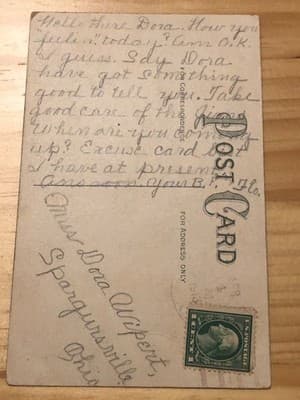 Hello there Dora. How you
feelin" today? Am O.K.
I guess. Say Dora
have got something
good to tell you. Take
good care of the
When are you coming
up? Excuse card but
I have at present
Ans soon. Your B. F. Flo.
POST CARD
FOR CORRESPONDENCE
FOR ADDRESS ONLY
Miss Dora Wipert,
Spargursville,
Ohio
U.S. POSTAGE
1 CENT 1